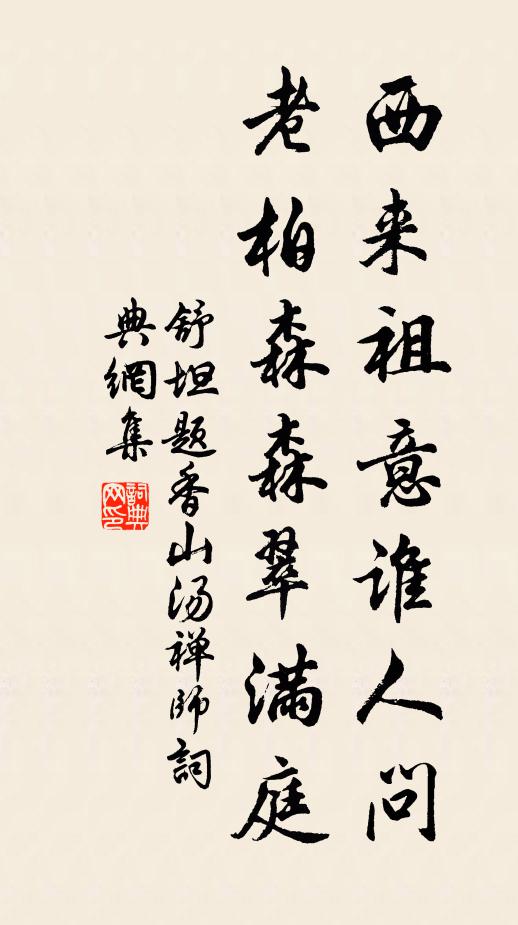 西来祖意谁人问
老柏森森翠满庭
舒坦题香山汤禅师詞
典網集
詞典网印